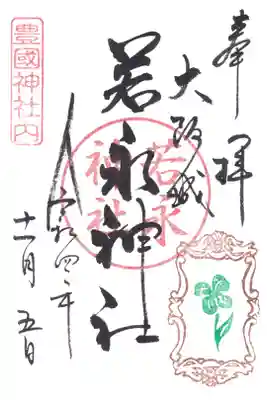 奉拝
大阪城
若永神社
若永
神社
令和四年
十一月五日
豊國神社内